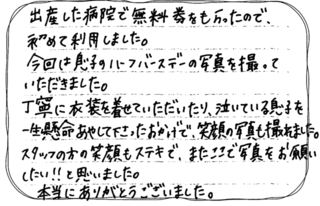 出産した病院で無料券をもらったので、
初めて利用しました。
今回は息子のハーフバースデーの写真を撮って
いただきました。
丁寧に衣装を着せていただいたり、泣いている息子を
一生懸命あやして下さったおかげで、笑顔の写真も撮れました。
スタッフの方の笑顔もステキで、またここで写真をお願い
したい!!と思いました。
本当にありがとうございました。